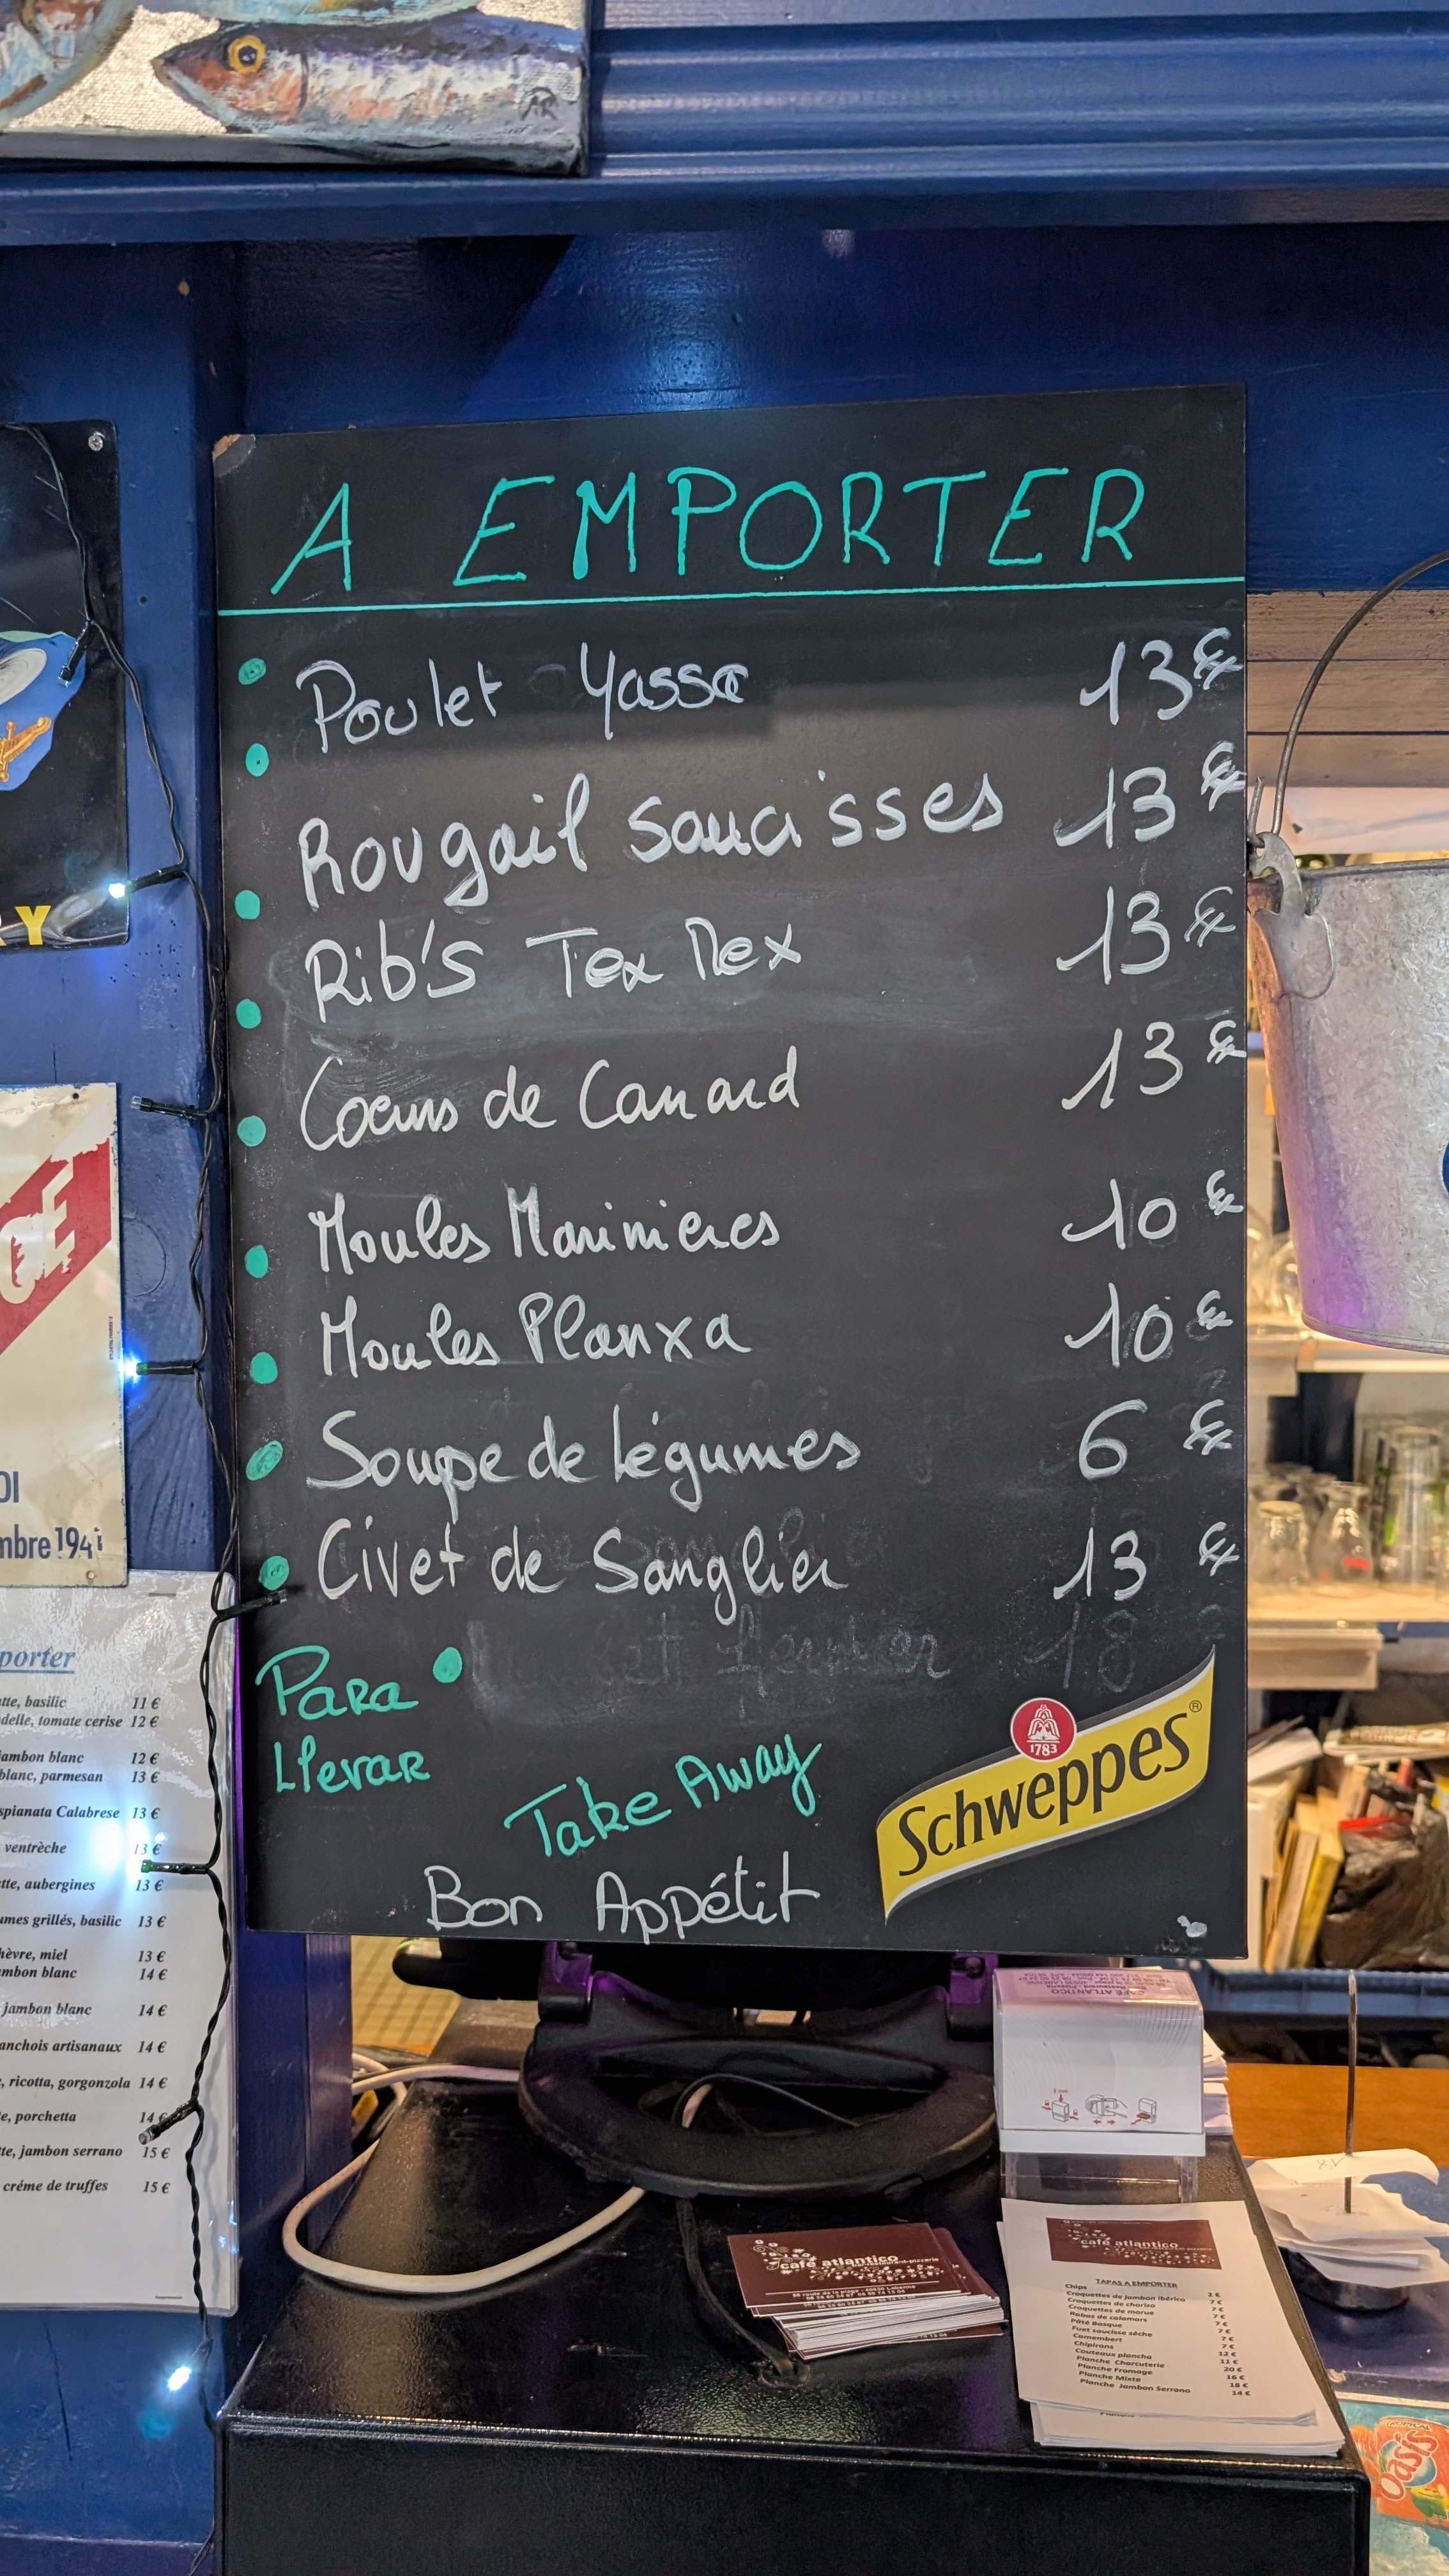 A EMPORTER
Poulet Yassa 13€
Rougail saucisses 13€
Rib's Tex Mex 13€
Coeurs de Canard 13€
Moules Marinieres 10€
Moules Planxa 10€
Soupe de légumes 6€
Civet de Sanglier 13€
Para
Llevar
Take Away
Bon Appétit
1783
Schweppes®
RY
OI
mbre 1941
porter
tte, basilic 11 €
delle, tomate cerise 12 €
jambon blanc 12 €
blanc, parmesan 13 €
spianata Calabrese 13 €
ventrèche 13 €
tte, aubergines 13 €
umes grillés, basilic 13 €
hèvre, miel 13 €
mbon blanc 14 €
jambon blanc 14 €
anchois artisanaux 14 €
, ricotta, gorgonzola 14 €
e, porchetta 14 €
tte, jambon serrano 15 €
créme de truffes 15 €
CAFÉ ATLANTICO
café atlantico
café atlantico
TAPAS A EMPORTER
Chips 2 €
Croquettes de jambon ibérico 7 €
Croquettes de chorizo 7 €
Croquettes de morue 7 €
Rabas de calamars 7 €
Pâté Basque 7 €
Fuet saucisse sèche 7 €
Camembert 7 €
Chipirons 12 €
Couteaux plancha 11 €
Planche Charcuterie 20 €
Planche Fromage 16 €
Planche Mixte 18 €
Planche Jambon Serrano 14 €
TROPICAL
Oasis